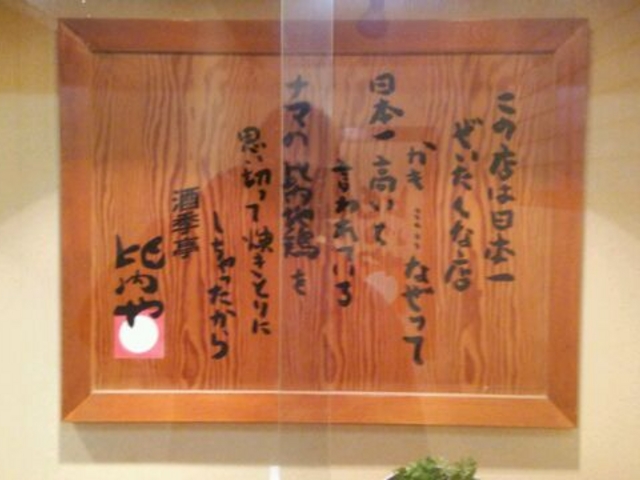 この店は日本一
ぜいたくな店
かも……なぜって
日本一高いと
言われている
ナマの比内地鶏を
思い切って焼きとりに
しちゃったから
酒季亭
比内や